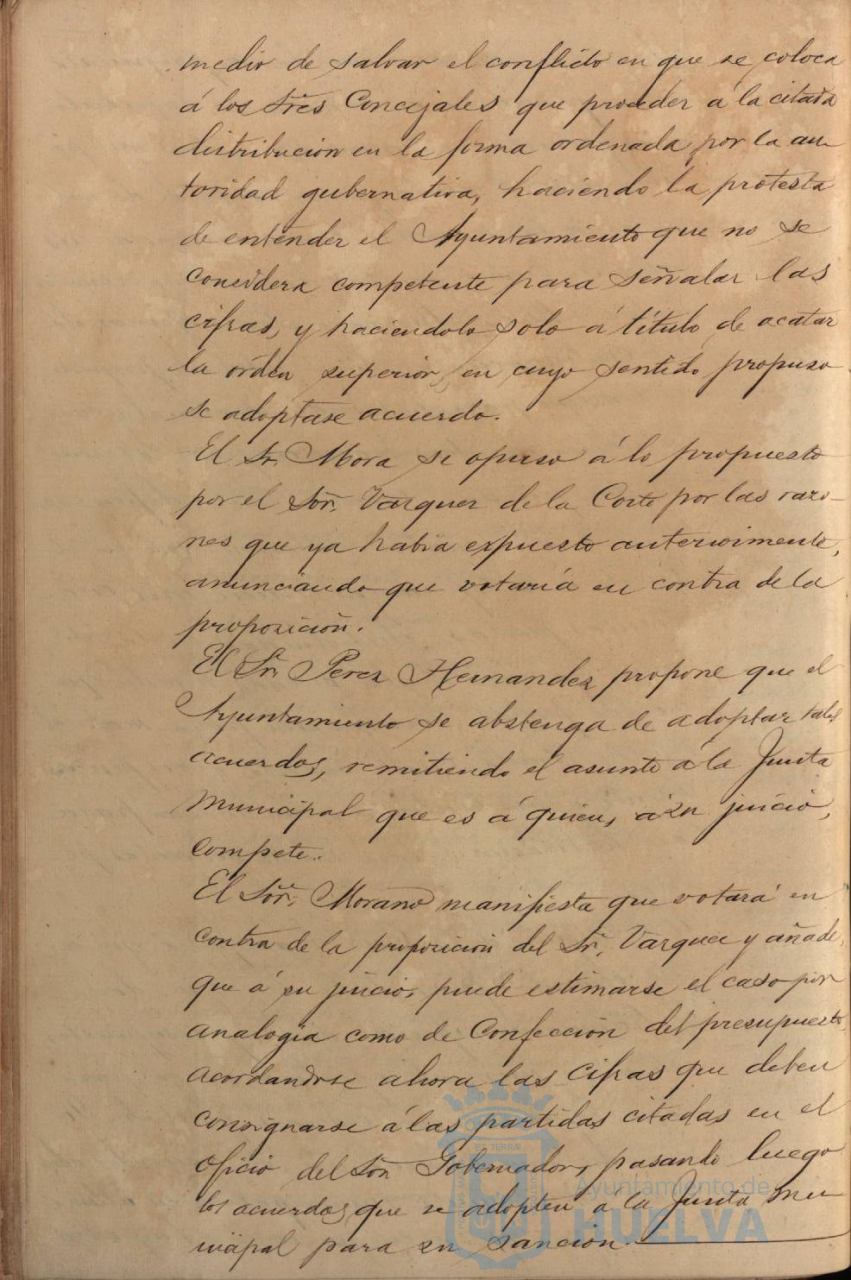 medio de salvar el conflicto en que se coloca
á los Sres Concejales que proceder á la citada
distribución en la forma ordenada por la au-
toridad gubernativa, haciendo la protesta
de entender el Ayuntamiento que no se
considera competente para señalar las
cifras, y haciendolo solo á título de acatar
la orden superior, en cuyo sentido propuso
se adoptase acuerdo.
El Sr. Mora se opuso á lo propuesto
por el Sor. Vazquez de la Corte por las razo-
nes que ya habia expuesto anteriormente,
anunciando que votaría en contra de la
proposición.
El Sr. Perez Hernandez propone que el
Ayuntamiento se abstenga de adoptar tales
acuerdos, remitiendo el asunto á la Junta
Municipal que es á quien, á su juicio,
compete.
El Sor. Morano manifiesta que votará en
contra de la proposición del Sr. Vazquez y añade,
que á su juicio, puede estimarse el caso por
analogía como de Confección del presupuesto,
acordandose ahora las cifras que deben
consignarse á las partidas citadas en el
oficio del Sor. Gobernador, pasando luego
los acuerdos que se adopten á la Junta mu-
nicipal para su sanción.
Ayuntamiento de
HUELVA